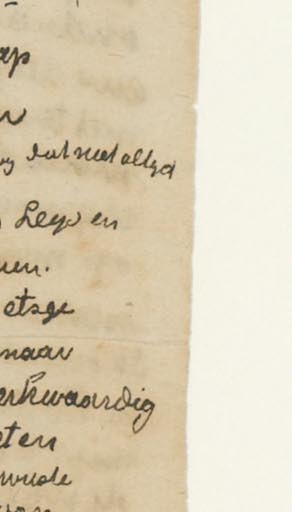 ap
n
dat niet altyd
Leys en
nen.
etsge
naar
erkwaardig
eten